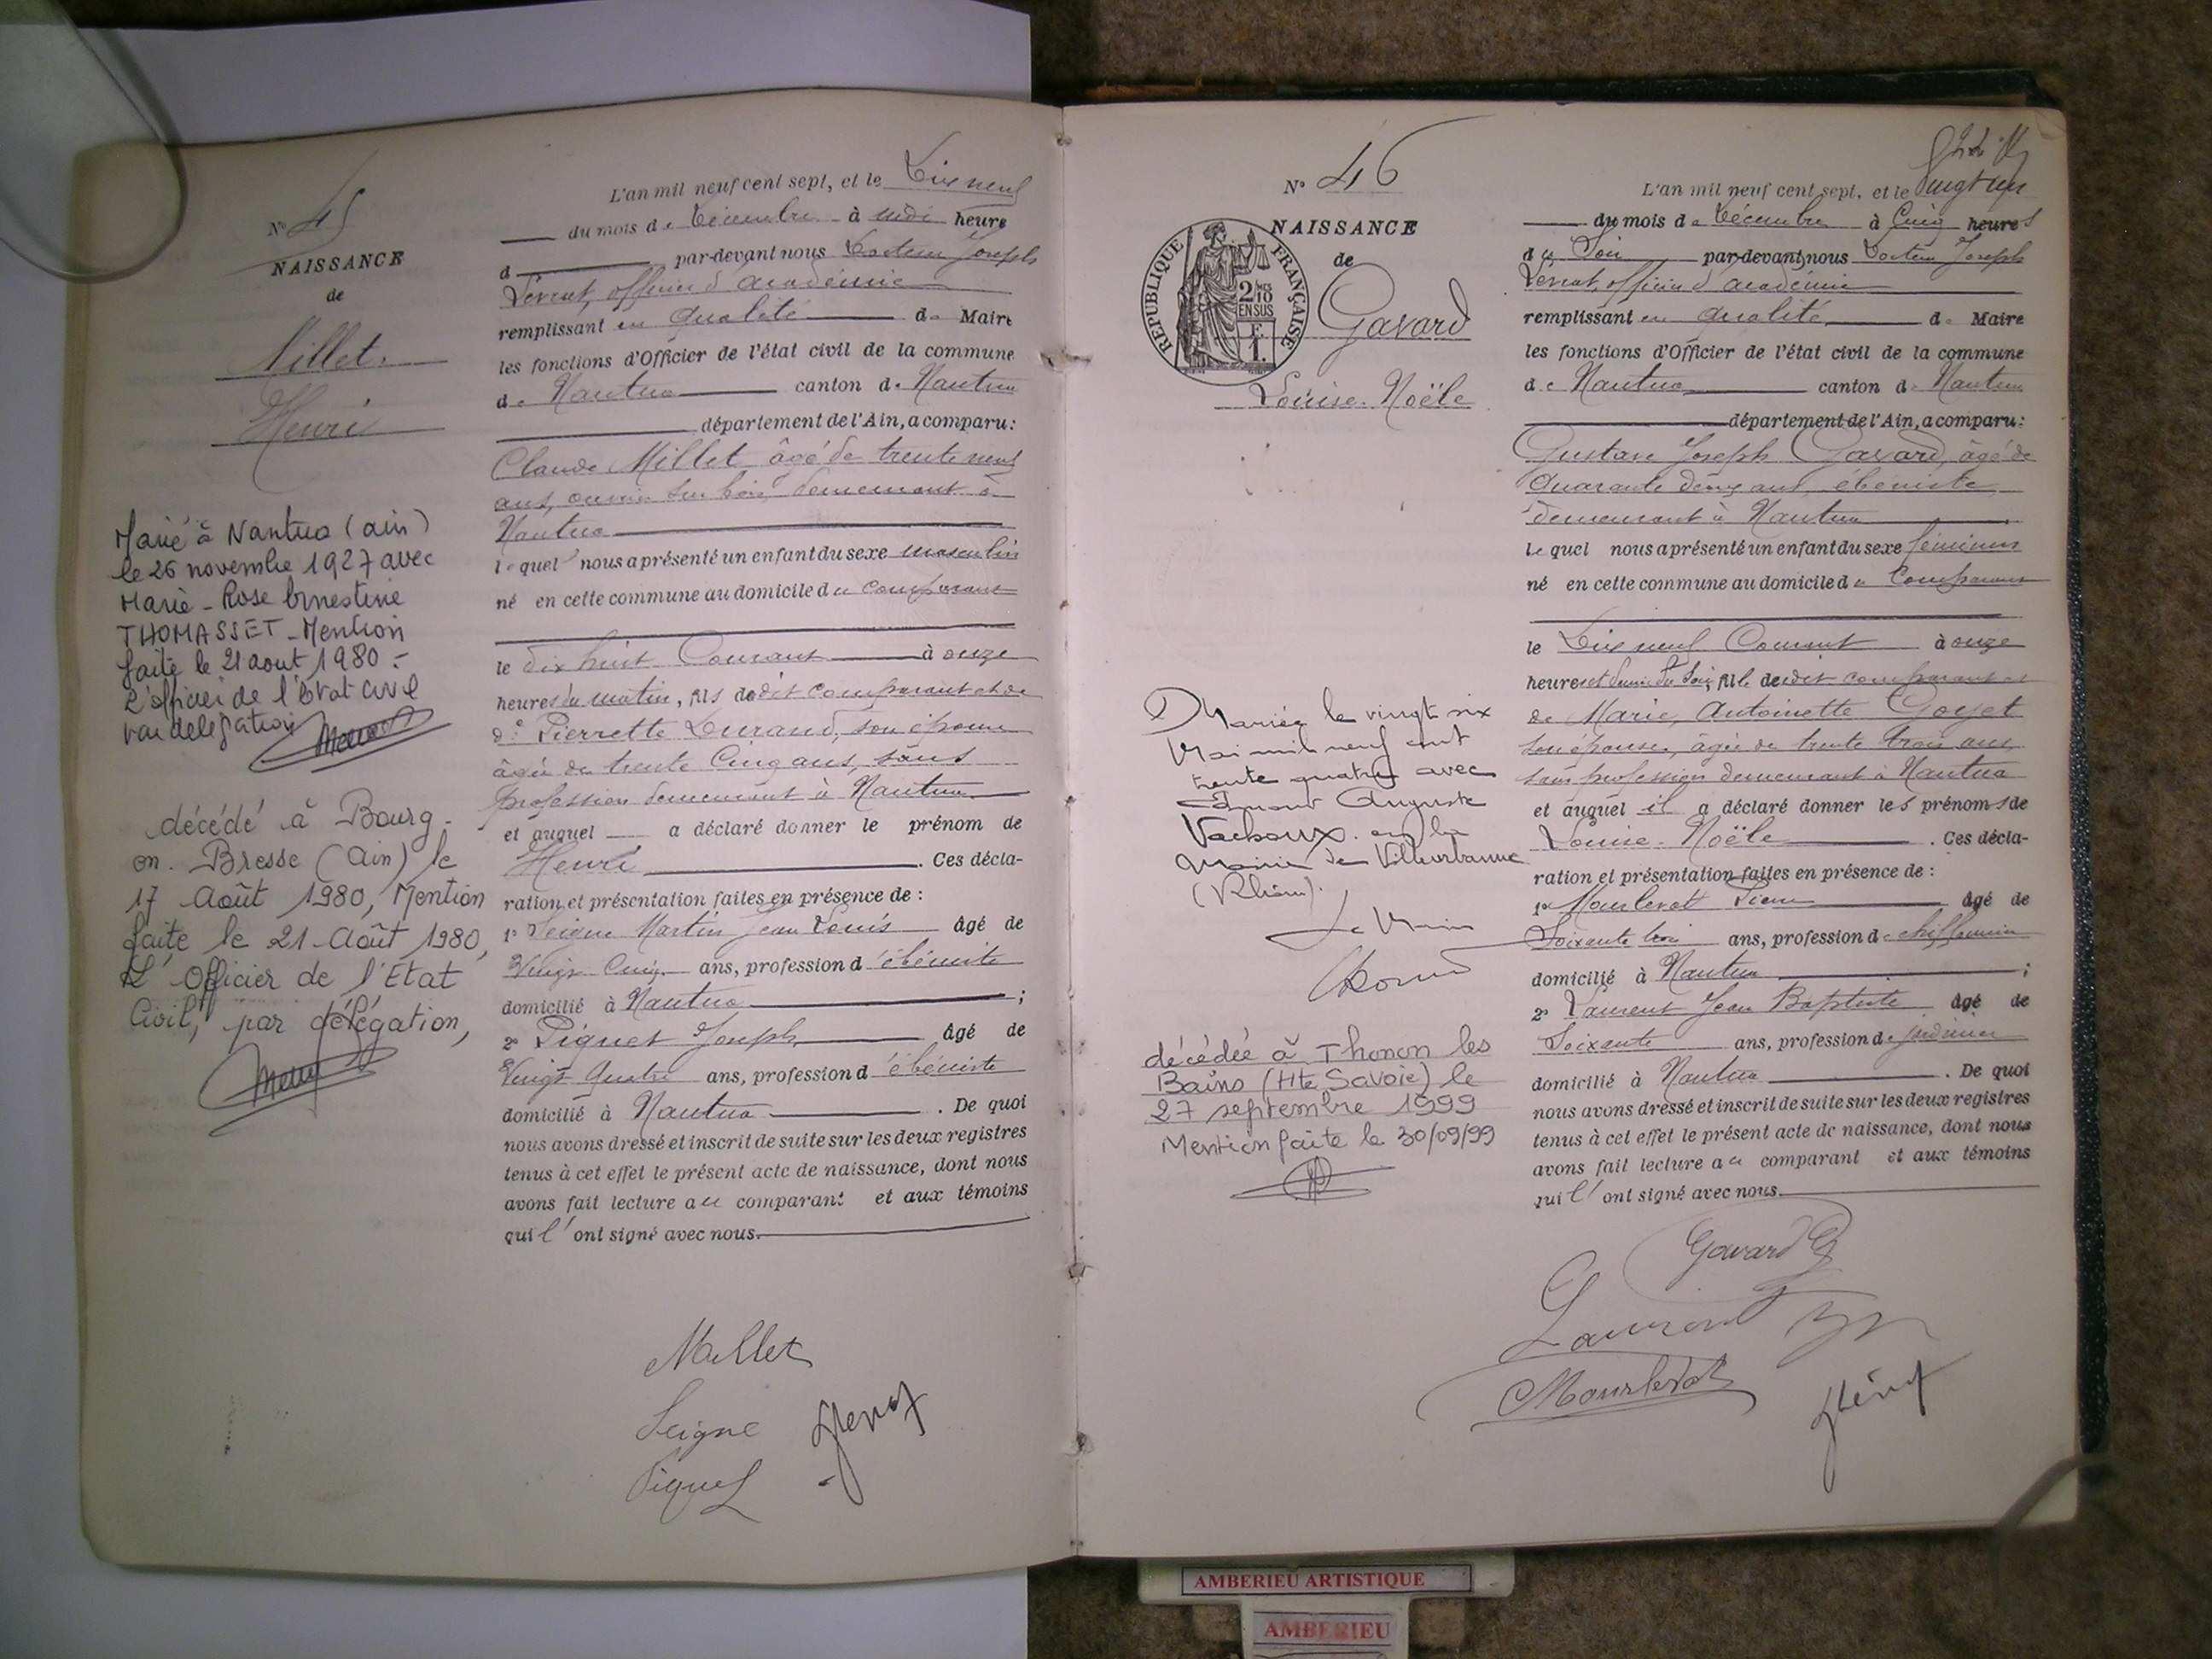 N° 45
NAISSANCE
de
Millet
Henri
Marié à Nantua (ain)
le 26 novembre 1927 avec
Marie-Rose Ernestine
THOMASSET - Mention
faite le 21 aout 1980 -
L'officier de l'Etat civil
par delegation
décédé à Bourg-
en-Bresse (Ain) le
17 Août 1980, Mention
faite le 21 Août 1980,
L'Officier de l'Etat
Civil, par délégation,
L'an mil neuf cent sept, et le Dix neuf
du mois de Décembre à midi heure
d par-devant nous Docteur Joseph
officier d'académie
remplissant en qualité de Maire
les fonctions d'Officier de l'état civil de la commune
de Nantua canton de Nantua
département de l'Ain, a comparu:
Claude Millet âgé de trente neuf
ans, ouvrier sur bois demeurant à
Nantua
lequel nous a présenté un enfant du sexe masculin
né en cette commune au domicile du comparant
le dix huit Courant à onze
heures du matin, fils dudit comparant et de
de Pierrette Durand, son épouse
âgée de trente Cinq ans, sans
profession demeurant à Nantua
et auquel a déclaré donner le prénom de
Henri . Ces décla-
ration et présentation faites en présence de :
1° Seigne Martin Jean Louis âgé de
Vingt Cinq ans, profession d'ébéniste
domicilié à Nantua ;
2° Piquet Joseph âgé de
Vingt Quatre ans, profession d'ébéniste
domicilié à Nantua . De quoi
nous avons dressé et inscrit de suite sur les deux registres
tenus à cet effet le présent acte de naissance, dont nous
avons fait lecture au comparant et aux témoins
qui l'ont signé avec nous.
Millet
Seigne
Piquet
N° 46
NAISSANCE
de
RÉPUBLIQUE FRANÇAISE
2/10 EN SUS
Gavard
Louise-Noële
Mariée le vingt six
Mai mil neuf cent
trente quatre avec
Auguste
Vachoux en la
Mairie de Villeurbanne
(Rhône).
Le Maire
décédée à Thonon les
Bains (Hte Savoie) le
27 septembre 1999
Mention faite le 30/09/99
L'an mil neuf cent sept, et le Vingt un
du mois de Décembre à Cinq heures
du Soir par-devant nous Docteur Joseph
officier d'académie
remplissant en qualité de Maire
les fonctions d'Officier de l'état civil de la commune
de Nantua canton de Nantua
département de l'Ain, a comparu:
Gustave Joseph Gavard, âgé de
Quarante deux ans, ébéniste
demeurant à Nantua
Lequel nous a présenté un enfant du sexe féminin
né en cette commune au domicile du Comparant
le Dix neuf Courant à onze
heures et demie du Soir, fille dudit comparant et
de Marie, Antoinette Goyet
son épouse, âgée de trente trois ans,
sans profession demeurant à Nantua
et auquel il a déclaré donner les prénoms de
Louise-Noële . Ces décla-
ration et présentation faites en présence de :
1° Mourlevat Pierre âgé de
Soixante trois ans, profession de chiffonnier
domicilié à Nantua ;
2° Laurent Jean Baptiste âgé de
Soixante ans, profession de jardinier
domicilié à Nantua . De quoi
nous avons dressé et inscrit de suite sur les deux registres
tenus à cet effet le présent acte de naissance, dont nous
avons fait lecture au comparant et aux témoins
qui l'ont signé avec nous.
Gavard G
Laurent
Mourlevat
AMBERIEU ARTISTIQUE
AMBERIEU